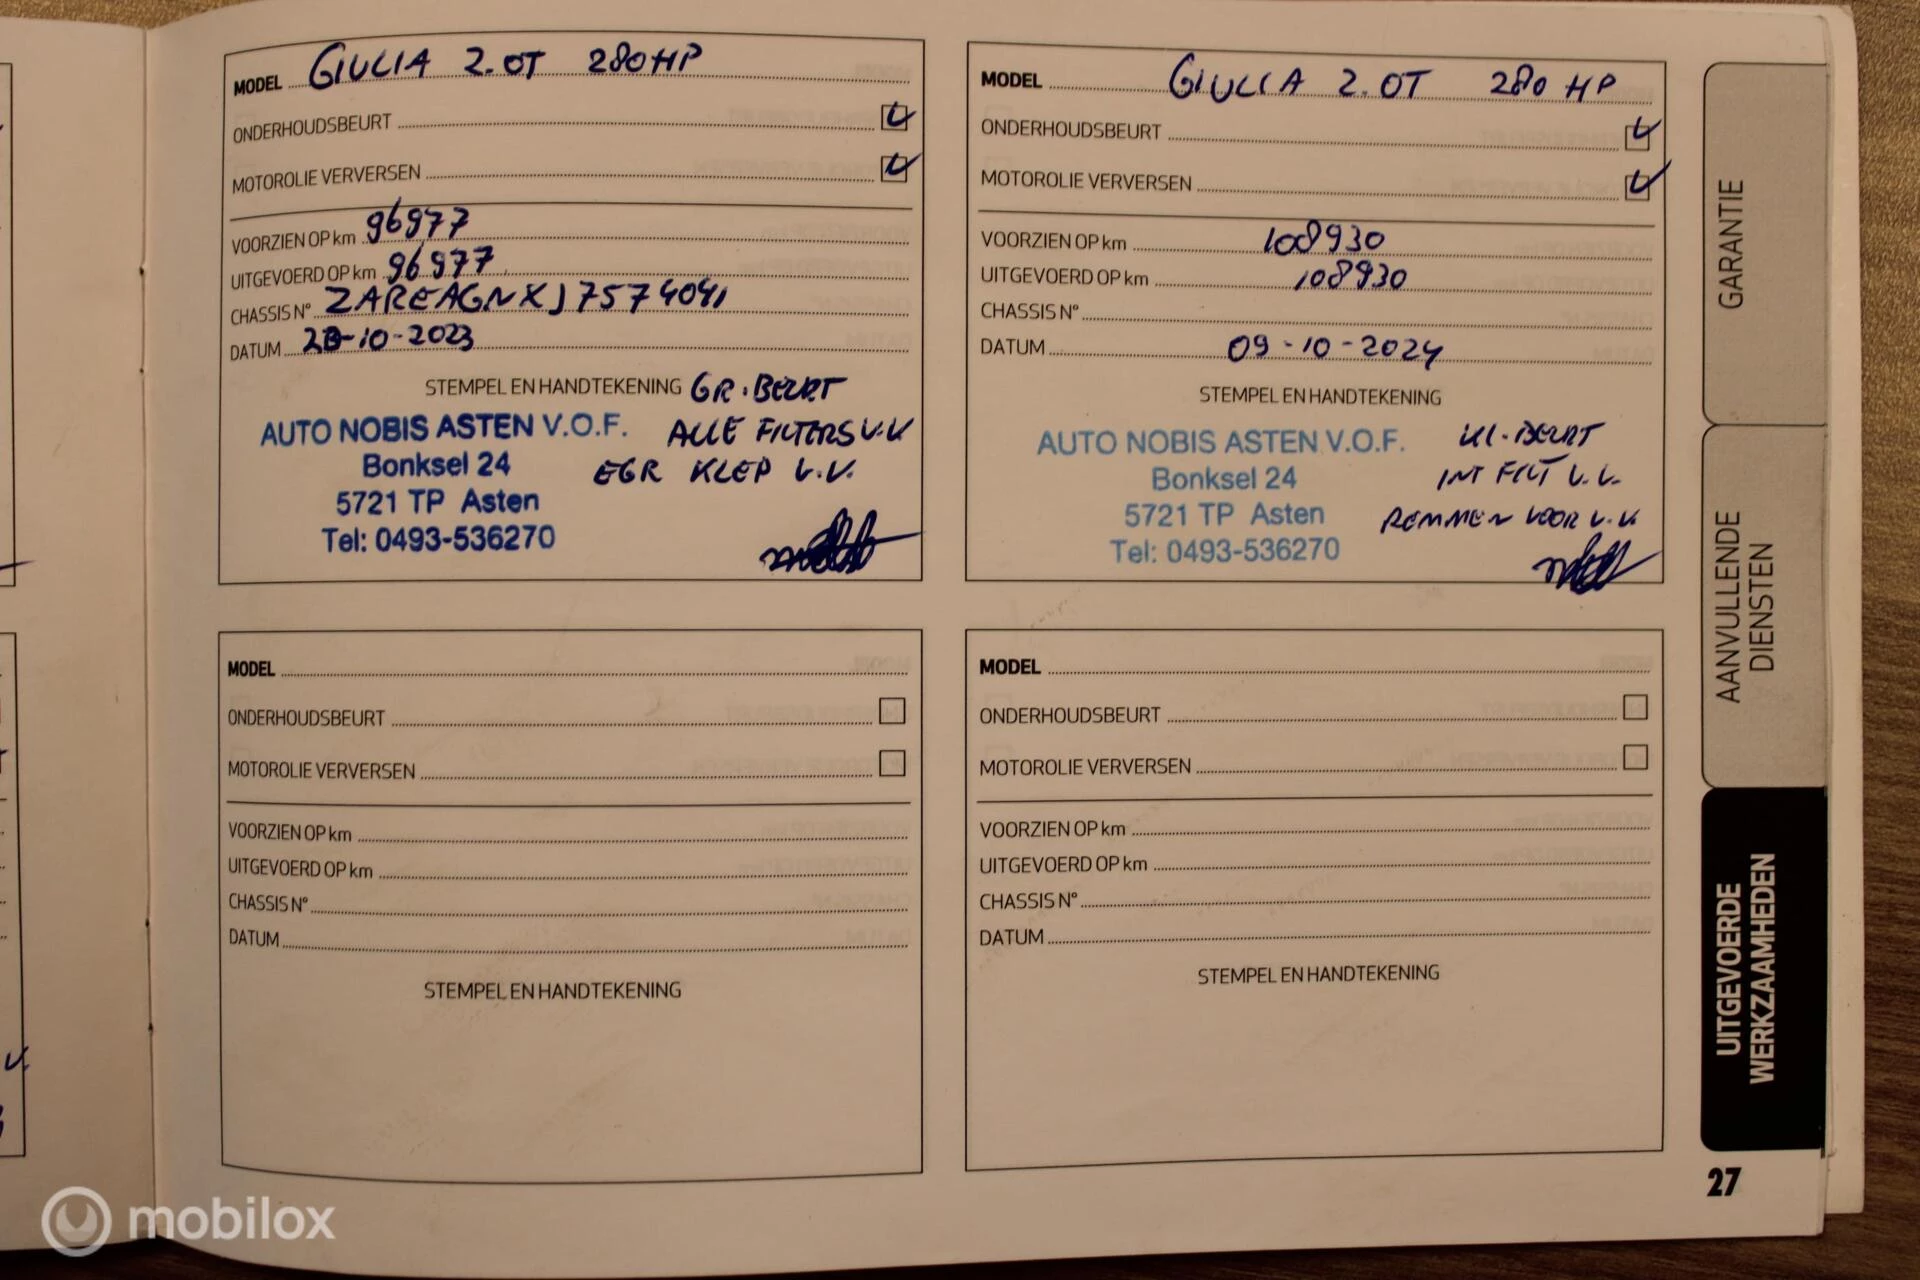 MODEL GIULIA 2.0T 280HP
ONDERHOUDSBEURT
MOTOROLIE VERVERSEN
VOORZIEN OP km 96977
UITGEVOERD OP km 96977
CHASSIS N° ZAREAGNXJ7574041
DATUM 20-10-2023
STEMPEL EN HANDTEKENING GR. BEURT
AUTO NOBIS ASTEN V.O.F. ALLE FILTERS V.V.
Bonksel 24 EGR KLEP V.V.
5721 TP Asten
Tel: 0493-536270
MODEL GIULIA 2.0T 280 HP
ONDERHOUDSBEURT
MOTOROLIE VERVERSEN
VOORZIEN OP km 108930
UITGEVOERD OP km 108930
CHASSIS N°
DATUM 09-10-2024
STEMPEL EN HANDTEKENING
AUTO NOBIS ASTEN V.O.F. KL. BEURT
Bonksel 24 INT FILT V.V.
5721 TP Asten REMMEN VOOR V.V.
Tel: 0493-536270
MODEL
ONDERHOUDSBEURT
MOTOROLIE VERVERSEN
VOORZIEN OP km
UITGEVOERD OP km
CHASSIS N°
DATUM
STEMPEL EN HANDTEKENING
MODEL
ONDERHOUDSBEURT
MOTOROLIE VERVERSEN
VOORZIEN OP km
UITGEVOERD OP km
CHASSIS N°
DATUM
STEMPEL EN HANDTEKENING
GARANTIE
AANVULLENDE
DIENSTEN
UITGEVOERDE
WERKZAAMHEDEN
27
mobilox